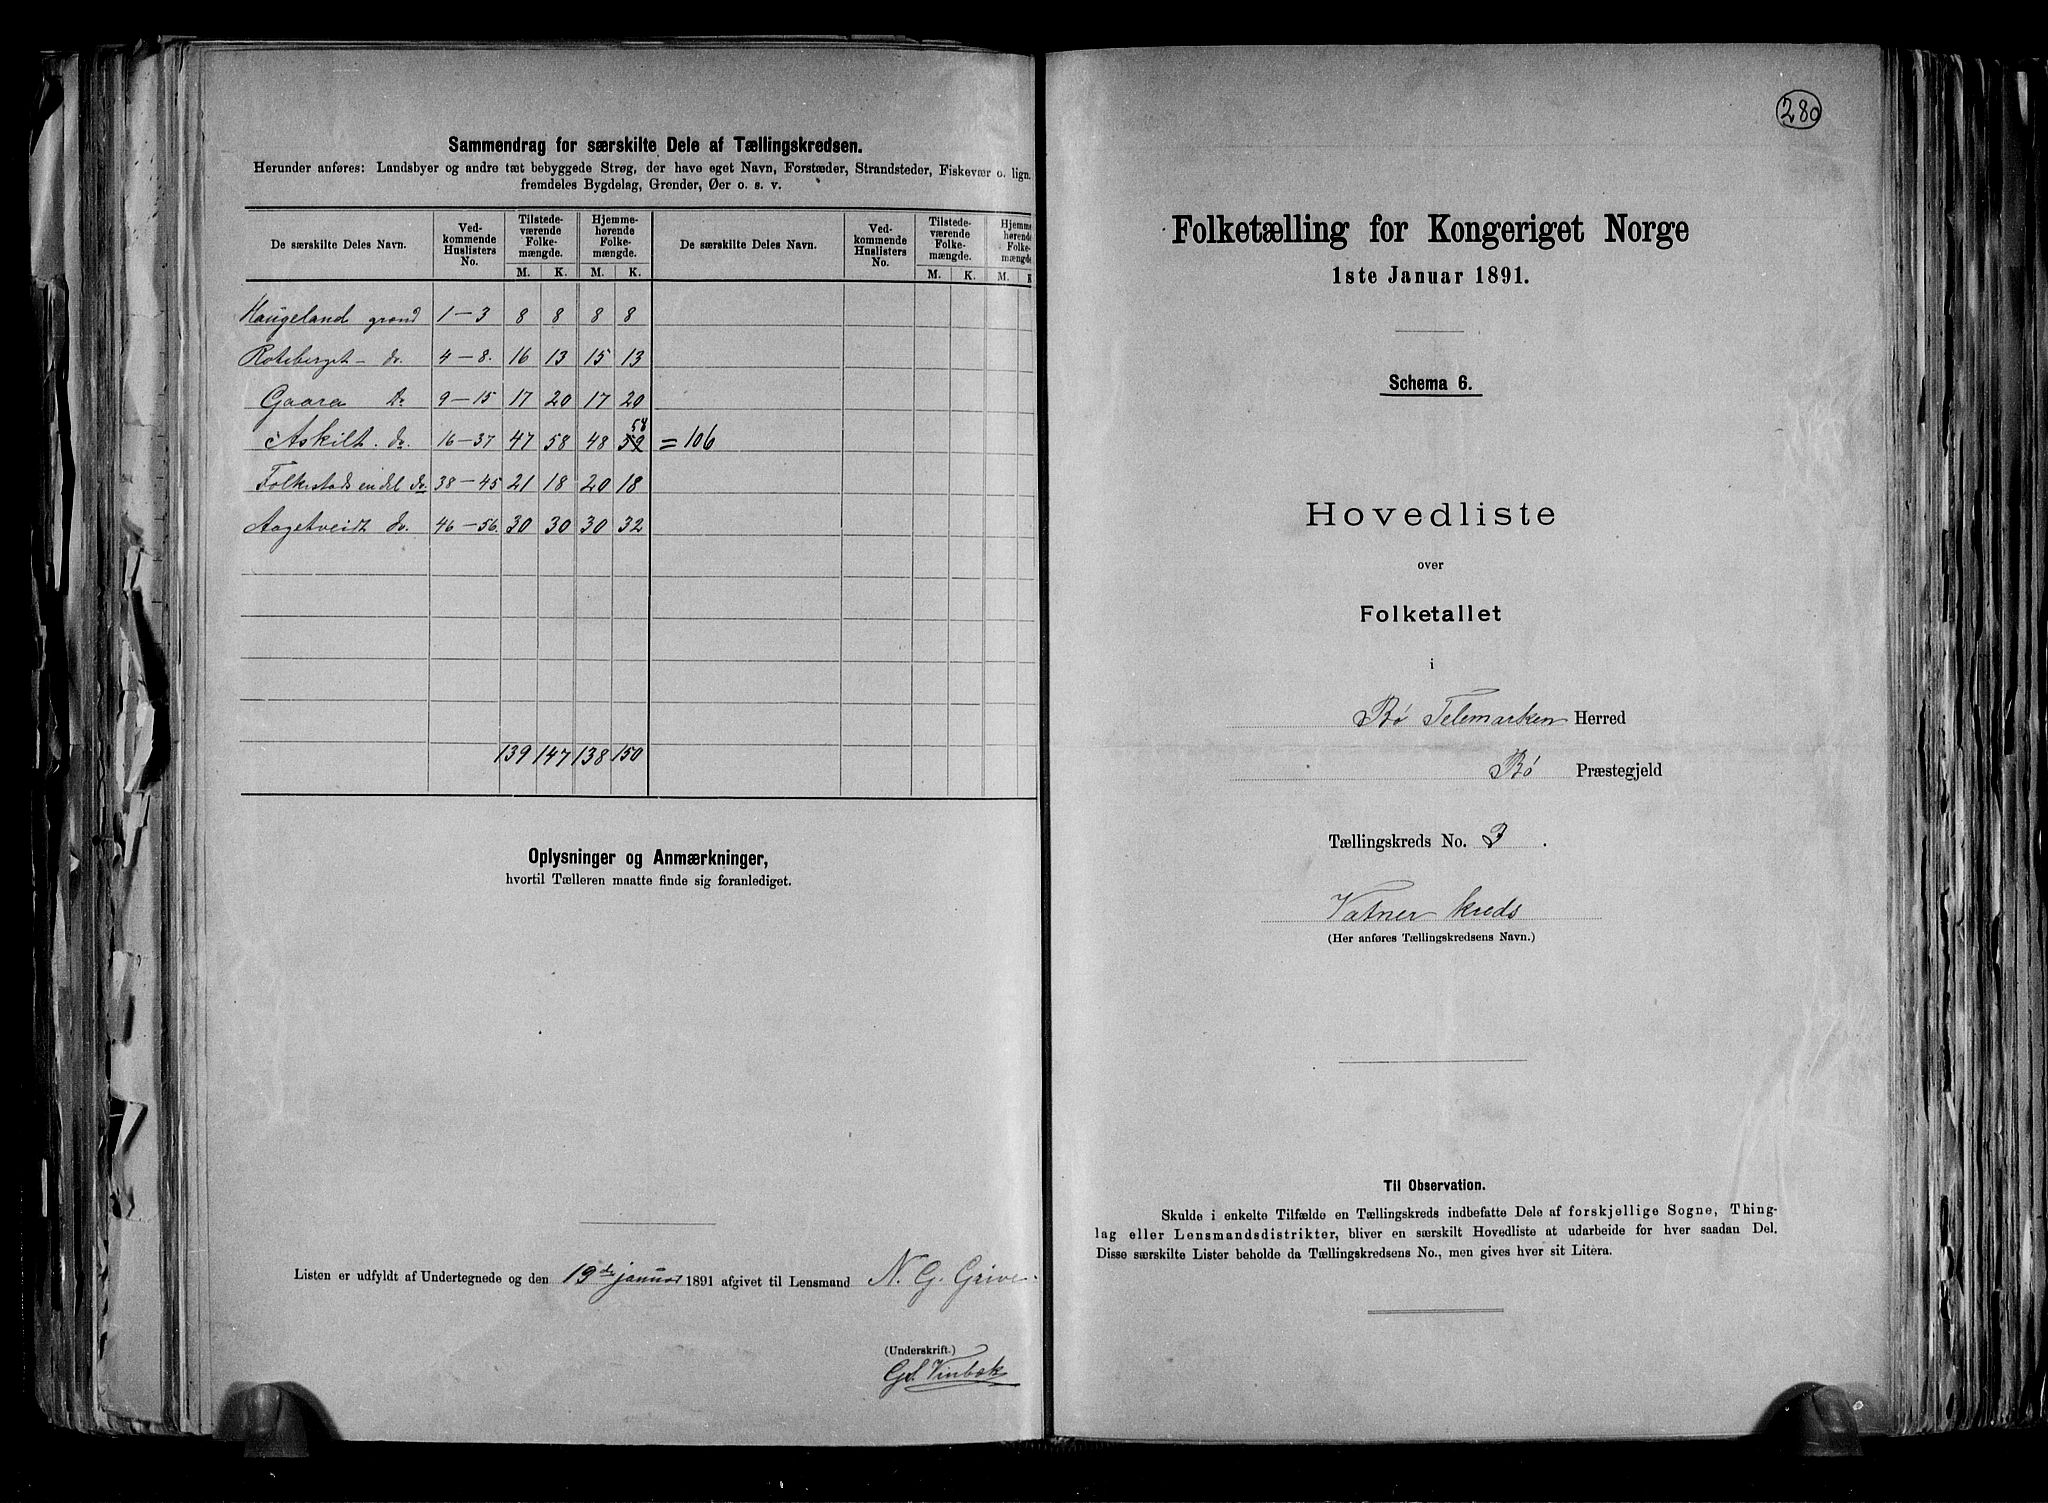 Sammendrag for særskilte Dele af Tællingskredsen.
Herunder anføres: Landsbyer og andre tæt bebyggede Strøg, der have eget Navn, Forstæder, Strandsteder, Fiskevær o. lign.
fremdeles Bygdelag, Grender, Øer o. s. v.
De særskilte Deles Navn. Vedkommende Huslisters No. Tilstedeværende Folkemængde. M. K. Hjemmehørende Folkemængde. M. K. De særskilte Deles Navn. Vedkommende Huslisters No. Tilstedeværende Folkemængde. M. K. Hjemmehørende Folkemængde M. K
Haugeland grænd 1-3 8 8 8 8
Roteberget - do. 4-8. 16 13 15 13
Gaara Do 9-15 17 20 17 20
Askilt. do. 16-37 47 58 48 59 58 = 106
Folkestads en del do. 38-45 21 18 20 18
Aagetveidt do. 46-56. 30 30 30 32
139 147 138 150
Oplysninger og Anmærkninger,
hvortil Tælleren maatte finde sig foranlediget.
Listen er udfyldt af Undertegnede og den 19de januar 1891 afgivet til Lensmand N. G. Grive
(Underskrift.)
280
Folketælling for Kongeriget Norge
1ste Januar 1891.
Schema 6.
Hovedliste
over
Folketallet
i
Bø Telemarken Herred
Bø Præstegjeld
Tællingskreds No. 3.
Vatner kreds
(Her anføres Tællingskredsens Navn.)
Til Observation.
Skulde i enkelte Tilfælde en Tællingskreds indbefatte Dele af forskjellige Sogne, Thing-
lag eller Lensmandsdistrikter, bliver en særskilt Hovedliste at udarbeide for hver saadan Del.
Disse særskilte Lister beholde da Tællingskredsens No., men gives hver sit Litera.